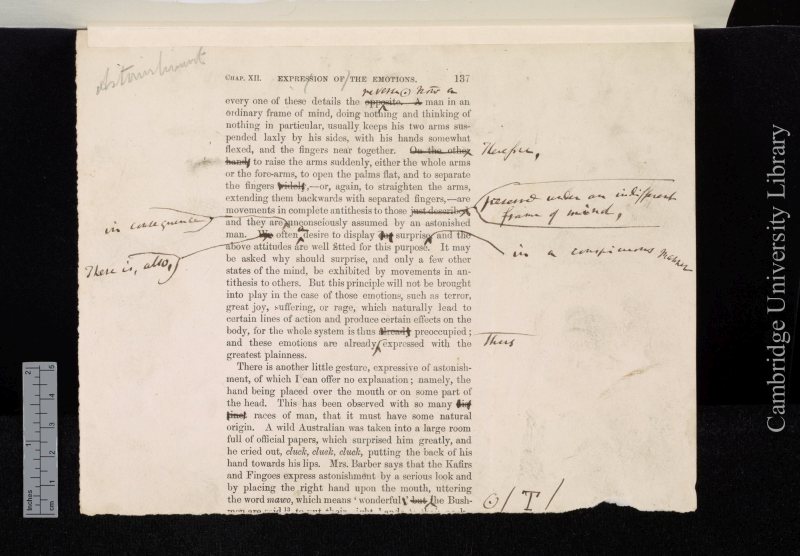 Astonishment
CHAP. XII. EXPRESSION OF THE EMOTIONS. 137
reverse(.) Now a
every one of these details the opposite. A man in an
ordinary frame of mind, doing nothing and thinking of
nothing in particular, usually keeps his two arms sus-
pended laxly by his sides, with his hands somewhat
flexed, and the fingers near together. On the other
Therefore,
hand, to raise the arms suddenly, either the whole arms
or the fore-arms, to open the palms flat, and to separate
the fingers widely,—or, again, to straighten the arms,
extending them backwards with separated fingers,—are
movements in complete antithesis to those just described,
preserved under an indifferent
frame of mind,
in consequence
and they are unconsciously assumed by an astonished
man. We often desire to display our surprise, and the
There is, also,
in a conspicuous manner
above attitudes are well fitted for this purpose. It may
be asked why should surprise, and only a few other
states of the mind, be exhibited by movements in an-
tithesis to others. But this principle will not be brought
into play in the case of those emotions, such as terror,
great joy, suffering, or rage, which naturally lead to
certain lines of action and produce certain effects on the
body, for the whole system is thus already preoccupied;
and these emotions are already expressed with the
thus
greatest plainness.
There is another little gesture, expressive of astonish-
ment, of which I can offer no explanation; namely, the
hand being placed over the mouth or on some part of
the head. This has been observed with so many dis-
tinct races of man, that it must have some natural
origin. A wild Australian was taken into a large room
full of official papers, which surprised him greatly, and
he cried out, cluck, cluck, cluck, putting the back of his
hand towards his lips. Mrs. Barber says that the Kafirs
and Fingoes express astonishment by a serious look and
by placing the right hand upon the mouth, uttering
the word mawo, which means 'wonderful,' but the Bush-
men are said to put their right hands to their
⊙/ T/
Cambridge University Library
Inches
1
2
cm
1
2
3
4
5